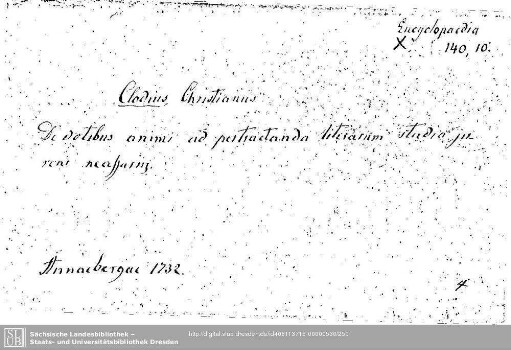 Encyclopaedia
X 140, 10.
Clodius, Christianus
De dotibus animi ad pertractanda literarum studia ju
veni necessariis.
Annaebergae 1732.
4
Sächsische Landesbibliothek –
Staats- und Universitätsbibliothek Dresden